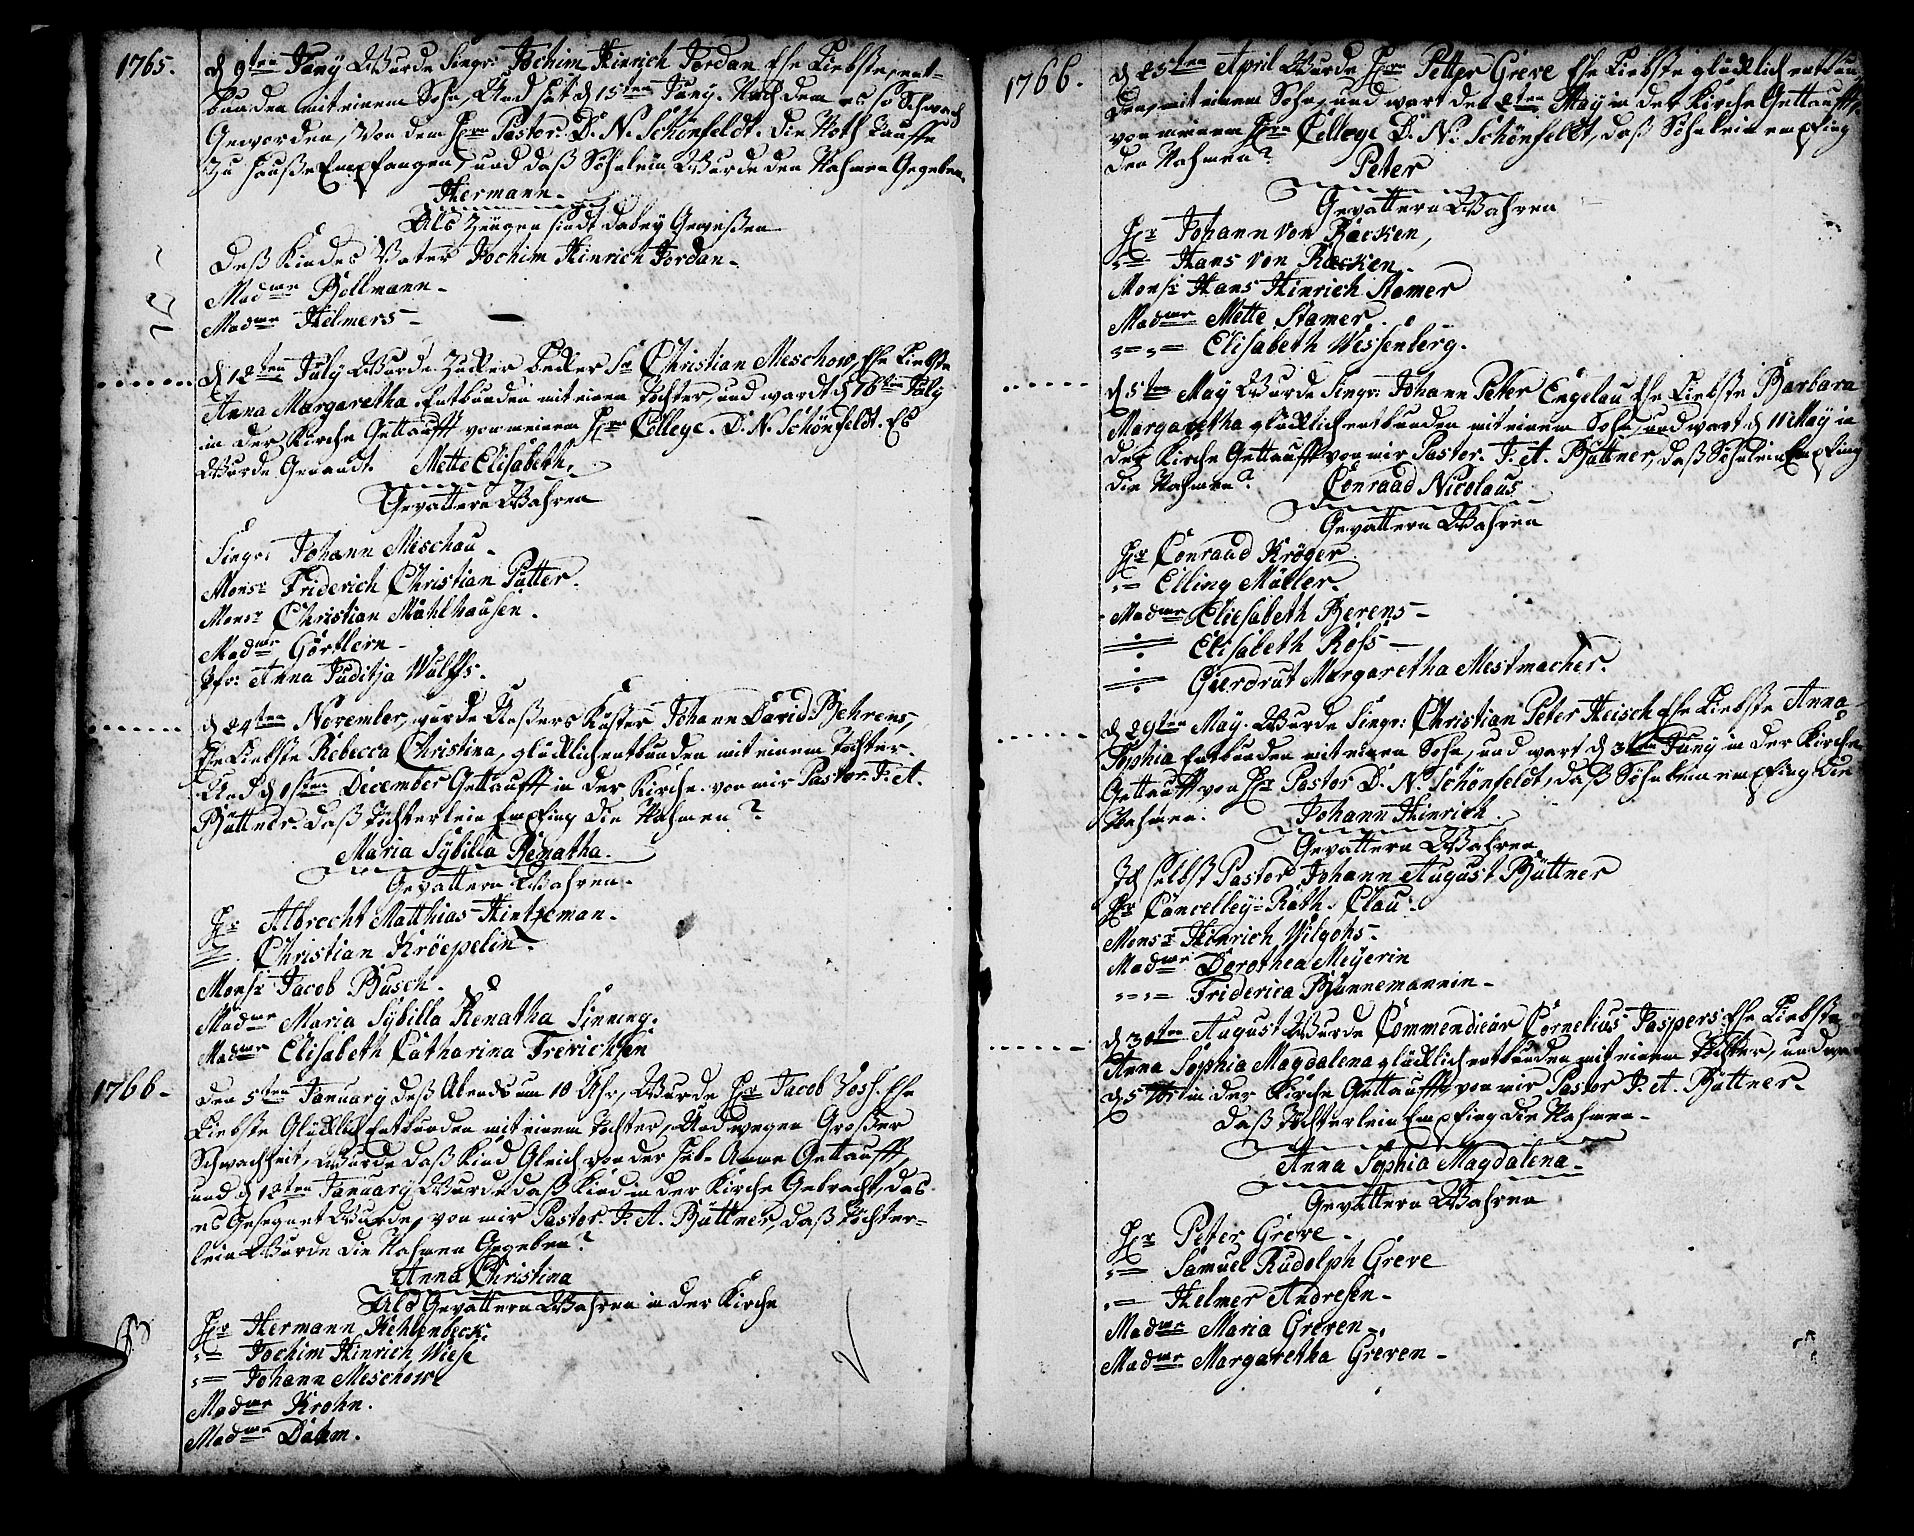 1765.
d 9ten Juny Wurde Singr: Jochim Hinrich Jordan Ehe Liebste, ent-
bunden mit einem Sohn, Und hat d 15ten Juny. Nach dem es so Schwach
Geworden, Von dem Hrn Pastor. D. N. Schönfeldt. die Noth Tauffe
Zu Hauße Empfangen, und daß Söhnlein Wurde den Nahmen Gegeben.
Hermann.
Als Zeugen sindt dabey Gewesen
Deß Kindes Vater Jochim Hinrich Jordan.
Madme Bollmann.
Madme Helmers.
d 12ten July Wurde Zucker Becker Sr Christian Meschow, Ehe Liebste
Anna Margaretha. Entbunden mit einen Tochter, und wardt d 16ten July
in der Kirche Gettaufft von meinem Hrn College. D. N. Schönfeldt. Es
Wurde Genandt. Mette Elisabeth.
Gevattern Wahren
Singr: Johann Meschau.
Monsr Friderich Christian Pütter.
Monsr Christian Mühlhausen.
Madme Görtlern.
Jfr: Anna Juditja Wulffs.
d 24ten November, wurde Unßers Küster Johann David Behrens,
Ehe Liebste Rebecca Christina, glücklich entbunden mit einem Tochter.
Und d 1sten December Gettaufft in der Kirche von mir Pastor J. A.
Büttner. daß Töchterlein Empfing die Nahmen?
Maria Sybilla Renatha.
Gevattern Wahren.
Hr Albrecht Matthias Hintzeman.
= Christian Kröepelin.
Monsr Jacob Busch.
Madme Maria Sybilla Renatha Sinning.
Madme Elisabeth Catharina Frerichsen
1766.
Den 5ten January deß Abends um 10 Uhr, Wurde Hr Jacob Voss. Ehe
Liebste Glücklich Entbunden mit einem Tochter, Und wegen Großer
Schwachheit, Wurde daß Kind Gleich von der Heb-Amme Gettaufft,
und d 12ten January Wurde daß Kind in der Kirche Gebracht, das
es Gesegnet Wurde, von mir Pastor. J. A. Büttner, daß Töchter-
lein Wurde die Nahmen Gegeben?
Anna Christina
Als Gevattern Wahren in der Kirche
Hr Hermann Kehlenbeck.
,= Jochim Hinrich Wiese
,= Johann Meschow
Madme Krohn.
Madme Dahm.
1766.
d 25ten April Wurde Hrn Petter Greve Ehe Liebste glücklich entbun
den, mit einem Sohn, und wart den 2ten May in der Kirche Gettaufft,
von meinem Hrn College D. N. Schönfeldt, daß Söhnlein empfing
den Nahmen? Peter
Gevattern Wahren
Hr Johann von Backen,
,= Hans von Racken.
Monsr Hans Hinrich Stamer
Madme Mette Stamer.
,=,= Elisabeth Wessenberg.
d 5ten May Wurde Singr: Johann Peter Engelau Ehe Liebste Barbara
Margaretha glücklich entbunden mit einem Sohn, und wart d 11 May in
der Kirche Gettaufft von mir Pastor. J. A. Büttner, daß Söhnlein Empfing
die Nahmen? Conraad Nicolaus
Gevattern Wahren
Hr Conraad Kröger
,= Elling Müller.
Madme Eliesabeth Berens
÷ Elisabeth Ross
÷ Guerdrut Margaretha Mestmacher.
d 29ten May. Wurde Singr: Christian Peter Heisch Ehe Liebste Anna
Sophia Entbunden mit einen Sohn, und wart d 3ten Juny in der Kirche
Gettaufft von Hr Pastor D. N. Schönfeldt, daß Söhnlein empfing die
Nahmen. Johann Hinrich
Gevattern Wahren
Ich selbst Pastor Johann August Büttner
Hr Cancelley=Rath. Clau:
Monsr Hinrich Vilgohs.
Madme Dorothea Meyerin
,=,= Friderica Bünnemannin.
d 30ten August Wurde Commendieur Cornelius Jaspers Ehe Liebste
Anna Sophia Magdalena glücklich entbunden mit einem Tochter, und
d 5 in der Kirche Gettaufft von mir Pastor J. A. Büttner.
Daß Töchterlein Empfing die Nahmen.
Anna Sophia Magdalena.
Gevattern Wahren
Hr Peter Greve.
,= Samuel Rudolph Greve
,= Helmer Andresen.
Madme Maria Greven.
Madme Margaretha Greven.